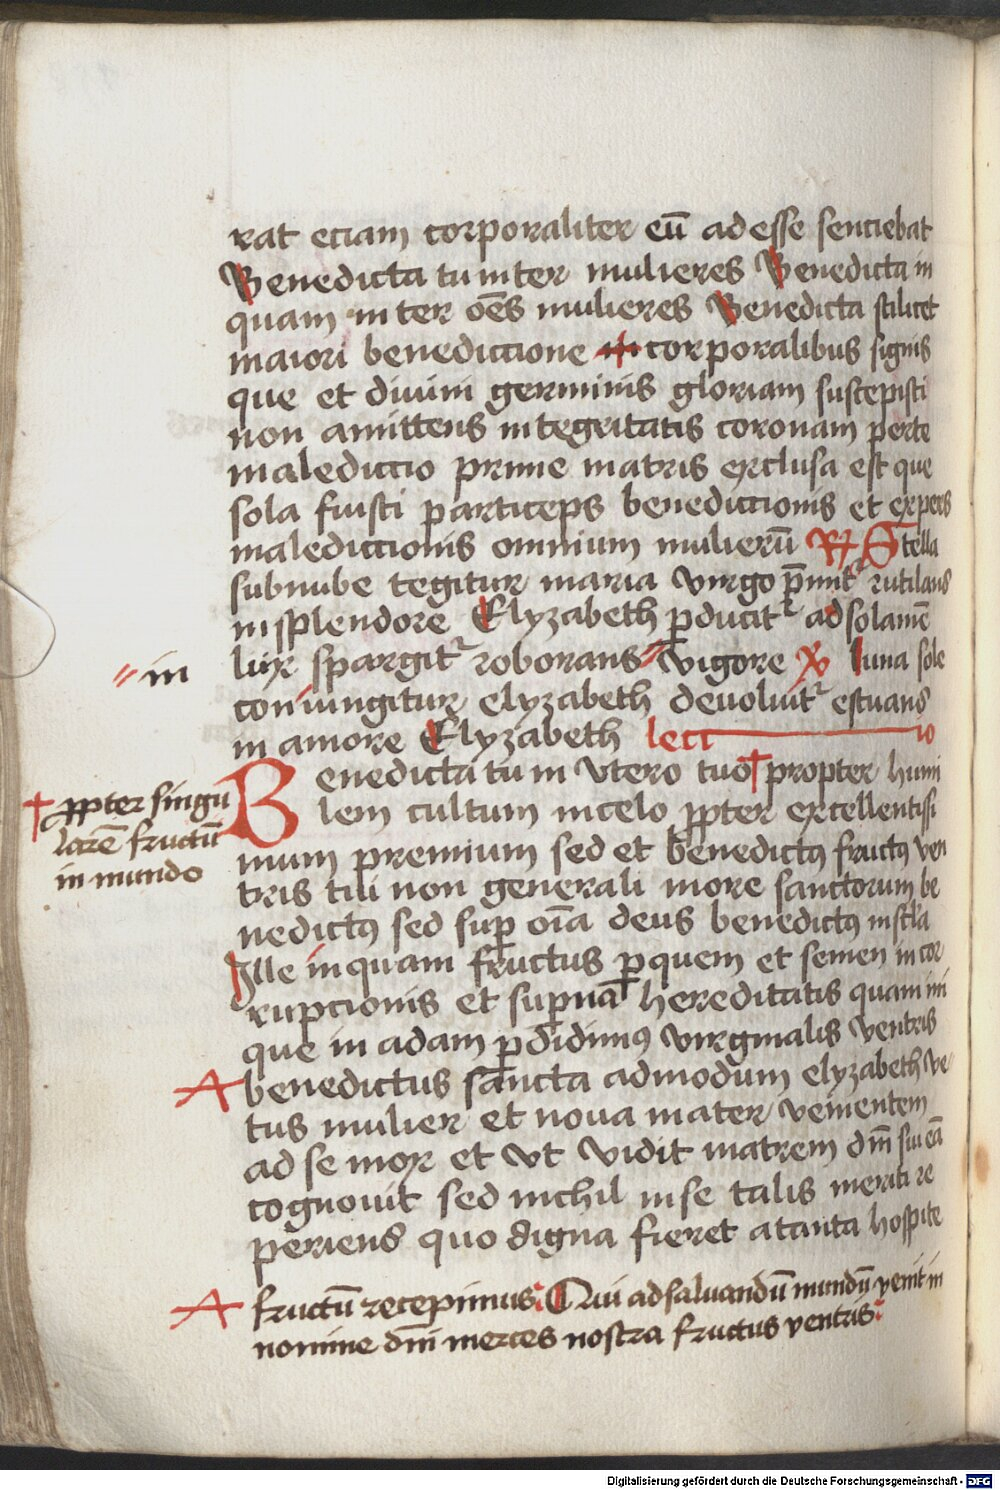 rat eciam corporaliter eū adesse senciebat
Benedicta tu inter mulieres Benedicta in
quam inter oēs mulieres Benedicta scilicet
maiori benediccione in corporalibus signis
que et diuini germinis gloriam suscepisti
non amittens integritatis coronam per te
malediccio prime matris exclusa est que
sola fuisti particeps benediccionis et expers
malediccionis omnium mulierū R Stella
sub nube tegitur maria virgo p̄mitˀ rutilans
in splendore Elyzabeth ꝑducitˀ ad solamē
lux spargitˀ roborans vigore V luna sole
in
coniungitur elyzabeth deuoluitˀ estuans
in amore Elyzabeth lectio
Benedicta tu in vtero tuo † propter humi
lem cultum in celo ꝓpter excellentissi
† ꝓpter singu
larē fructū
in mundo
mum premium sed et benedictꝰ fructꝰ ven
tris tui non generali more sanctorum be
nedictꝰ sed suꝑ oīa deus benedictꝰ in scl̄a
Ille inquam fructus ꝑ quem et semen incor
rupcionis et suꝑnā hereditatis quam in
que in adam ꝑdidimꝰ virginalis ventris
A benedictus sancta admodum elyzabeth ve
tus mulier et noua mater venientem
ad se mox et vt vidit matrem dn̄i sui eā
cognouit sed nichil in se talis meriti re
periens quo digna fieret a tanta hospite
A fructū recepimus Qui ad saluandū mundū venit in
nomine dn̄i merces nostra fructus ventris
Digitalisierung gefördert durch die Deutsche Forschungsgemeinschaft - DFG